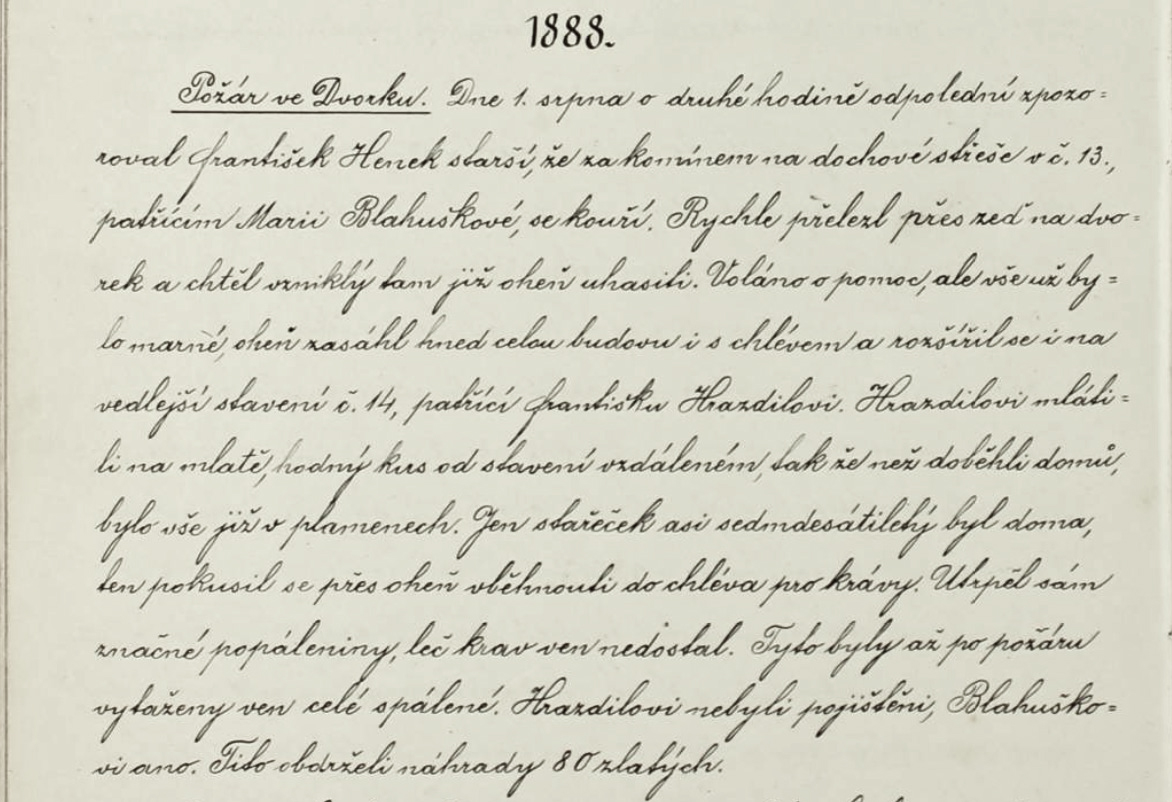 1888.
Požár ve Dvorku. Dne 1. srpna o druhé hodině odpolední zpozo=
roval František Henek starší, že za komínem na dochové střeše v č. 13.,
patřícím Marii Blahuškové, se kouří. Rychle přelezl přes zeď na dvo=
rek a chtěl vzniklý tam již oheň uhasiti. Voláno o pomoc, ale vše už by=
lo marné, oheň zasáhl hned celou budovu i s chlévem a rozšířil se i na
vedlejší stavení č. 14, patřící Františku Hrazdilovi. Hrazdilovi mláti=
li na mlatě, hodný kus od stavení vzdáleném, tak že než doběhli domů,
bylo vše již v plamenech. Jen stařeček asi sedmdesátiletý byl doma,
ten pokusil se přes oheň vběhnouti do chléva pro krávy. Utrpěl sám
značné popáleniny, leč krav ven nedostal. Tyto byly až po požáru
vytaženy ven celé spálené. Hrazdilovi nebyli pojištěni, Blahuško=
vi ano. Tito obdrželi náhrady 80 zlatých.